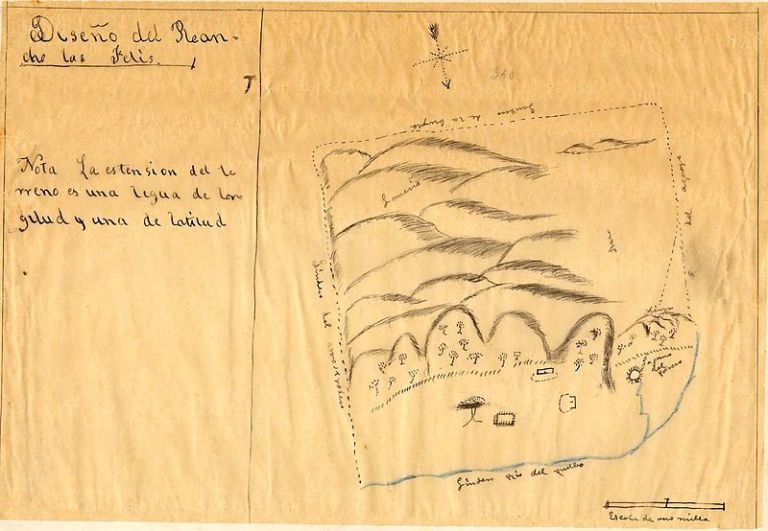 Diseño del Rean-
cho los Felis.
T
Nota La estension del te
rreno es una legua de lon
gitud y una de latitud
340
Lindero
Lomeria
Llano
Sierra
Lindero del
Laguna
del
Potrero
Lindero Rio del pueblo
Escala de una milla